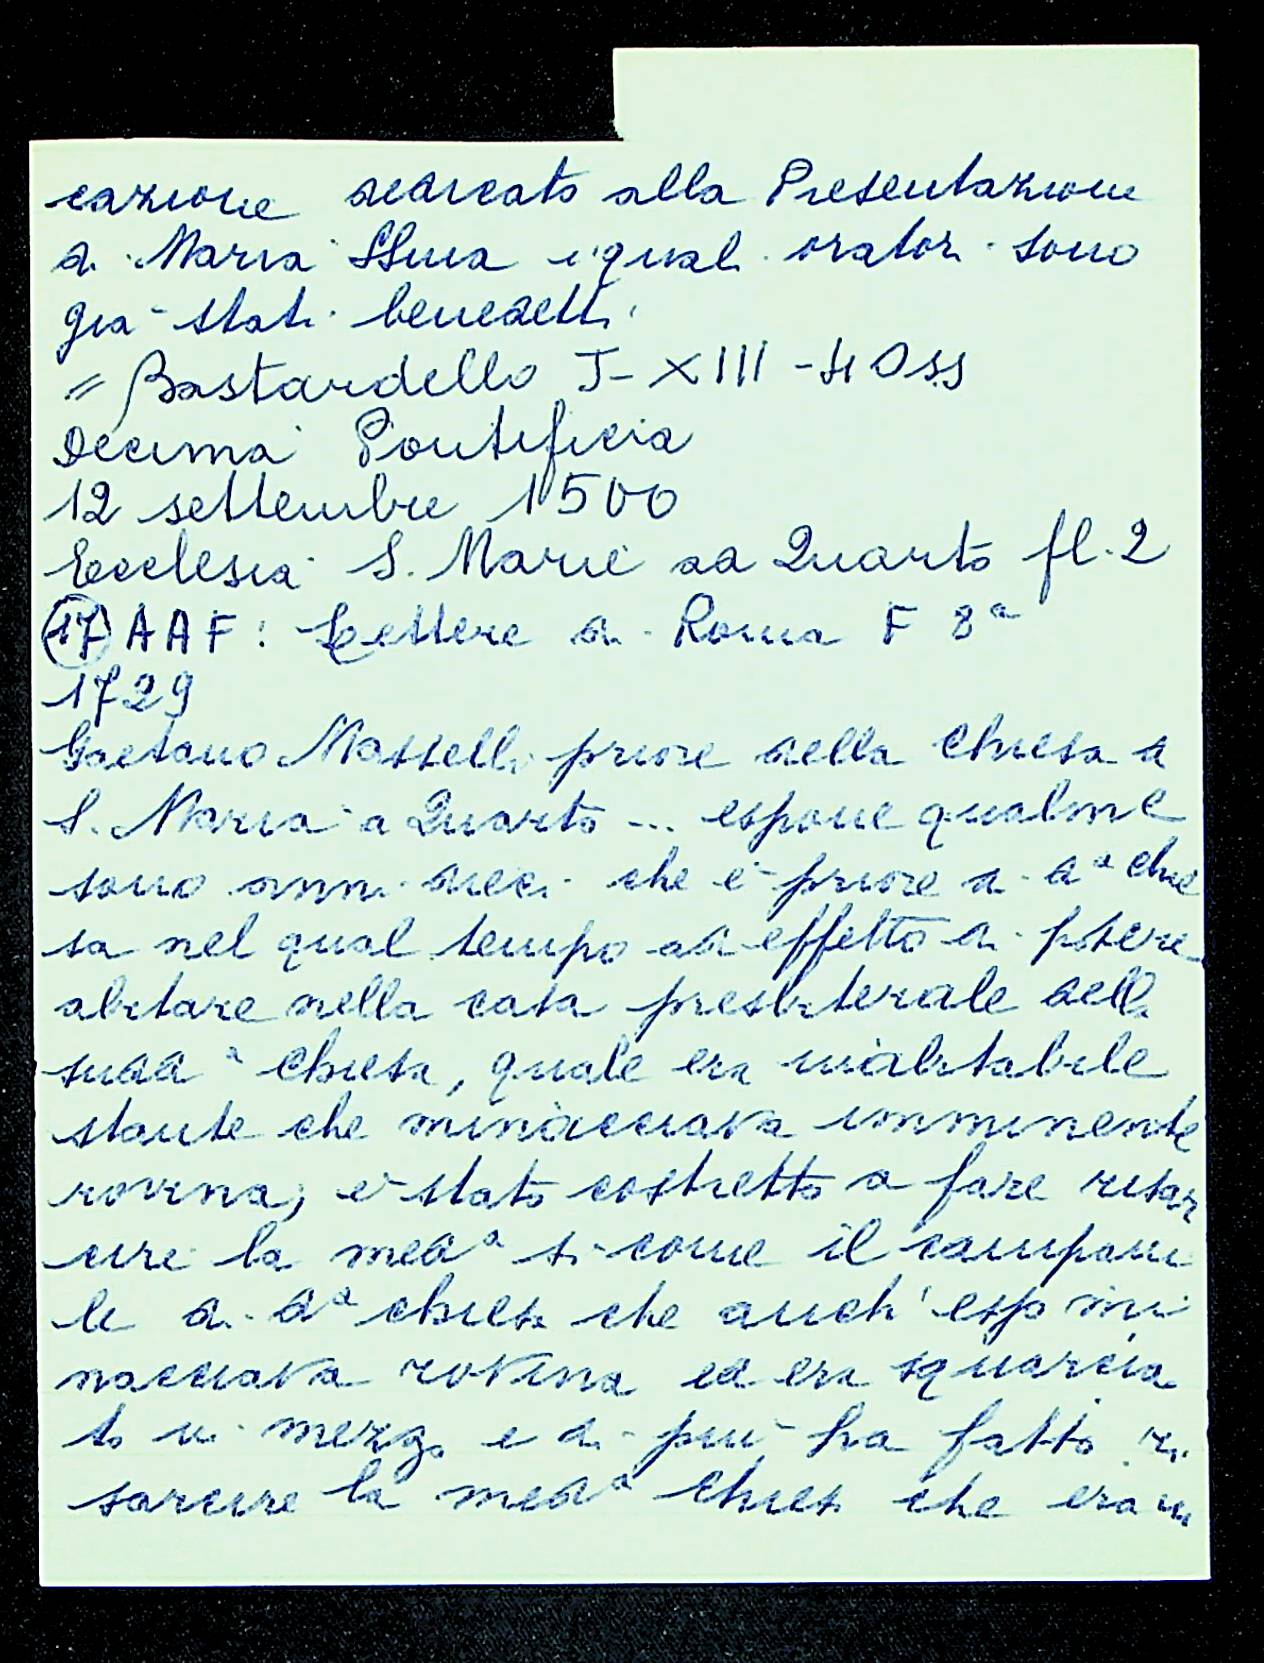 cazione dedicato alla Presentazione
di Maria SSma i quali oratori sono
già stati benedetti.
= Bastardello J-XIII-41 Oss
Decima Pontificia
12 settembre 1500
Ecclesia S. Marie ad Quarto fl. 2
(17) AAF: Lettere di Roma F 8ª
1729
Gaetano Masselli priore della Chiesa di
S. Maria a Quarto ... espone qualme
sono anni dieci che è priore di dª chie
sa nel qual tempo ad effetto di potere
abitare nella casa presbiterale della
suddª Chiesa, quale era inabitabile
stante che minacciava imminente
rovina, è stato costretto a fare risar
cire la medª si come il campani
le di dª chiesa che anch'esso mi
nacciava rovina ed era squarcia
to in mezzo e di più ha fatto ri
sarcire la medª Chiesa che era in